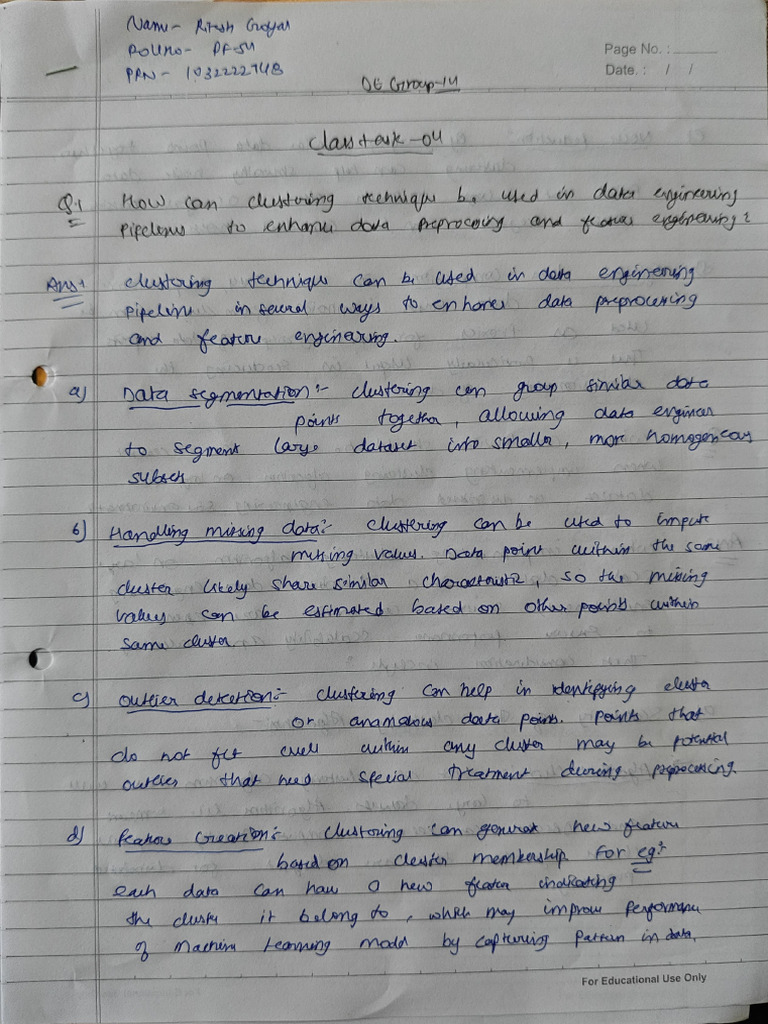 Name- Ritesh Goyal
Rollno- PF-54
PRN- 1032222748
Page No. :
Date. : / /
DE Group-14
Classtask-04
Q.1 How can clustering technique be used in data engineering
pipelines to enhance data preprocessing and feature engineering?
Ans:- clustering technique can be used in data engineering
pipeline in several ways to enhance data preprocessing
and feature engineering.
a) Data segmentation:- clustering can group similar data
points together, allowing data engineer
to segment large dataset into smaller, more homogeneous
subsets
b) Handling missing data:- clustering can be used to impute
missing values. Data point within the same
cluster likely share similar characteristic, so the missing
values can be estimated based on other points within
same cluster.
c) outlier detection:- clustering can help in identifying cluster
or anamolous data points. Points that
do not fit well within any cluster may be potential
outlies that need special treatment during preprocessing.
d) feature creation:- clustering can generate new feature
based on cluster membership. For eg:
each data can have a new feature indicating
the cluster it belong to, which may improve performance
of Machine Learning model by capturing pattern in data.
For Educational Use Only